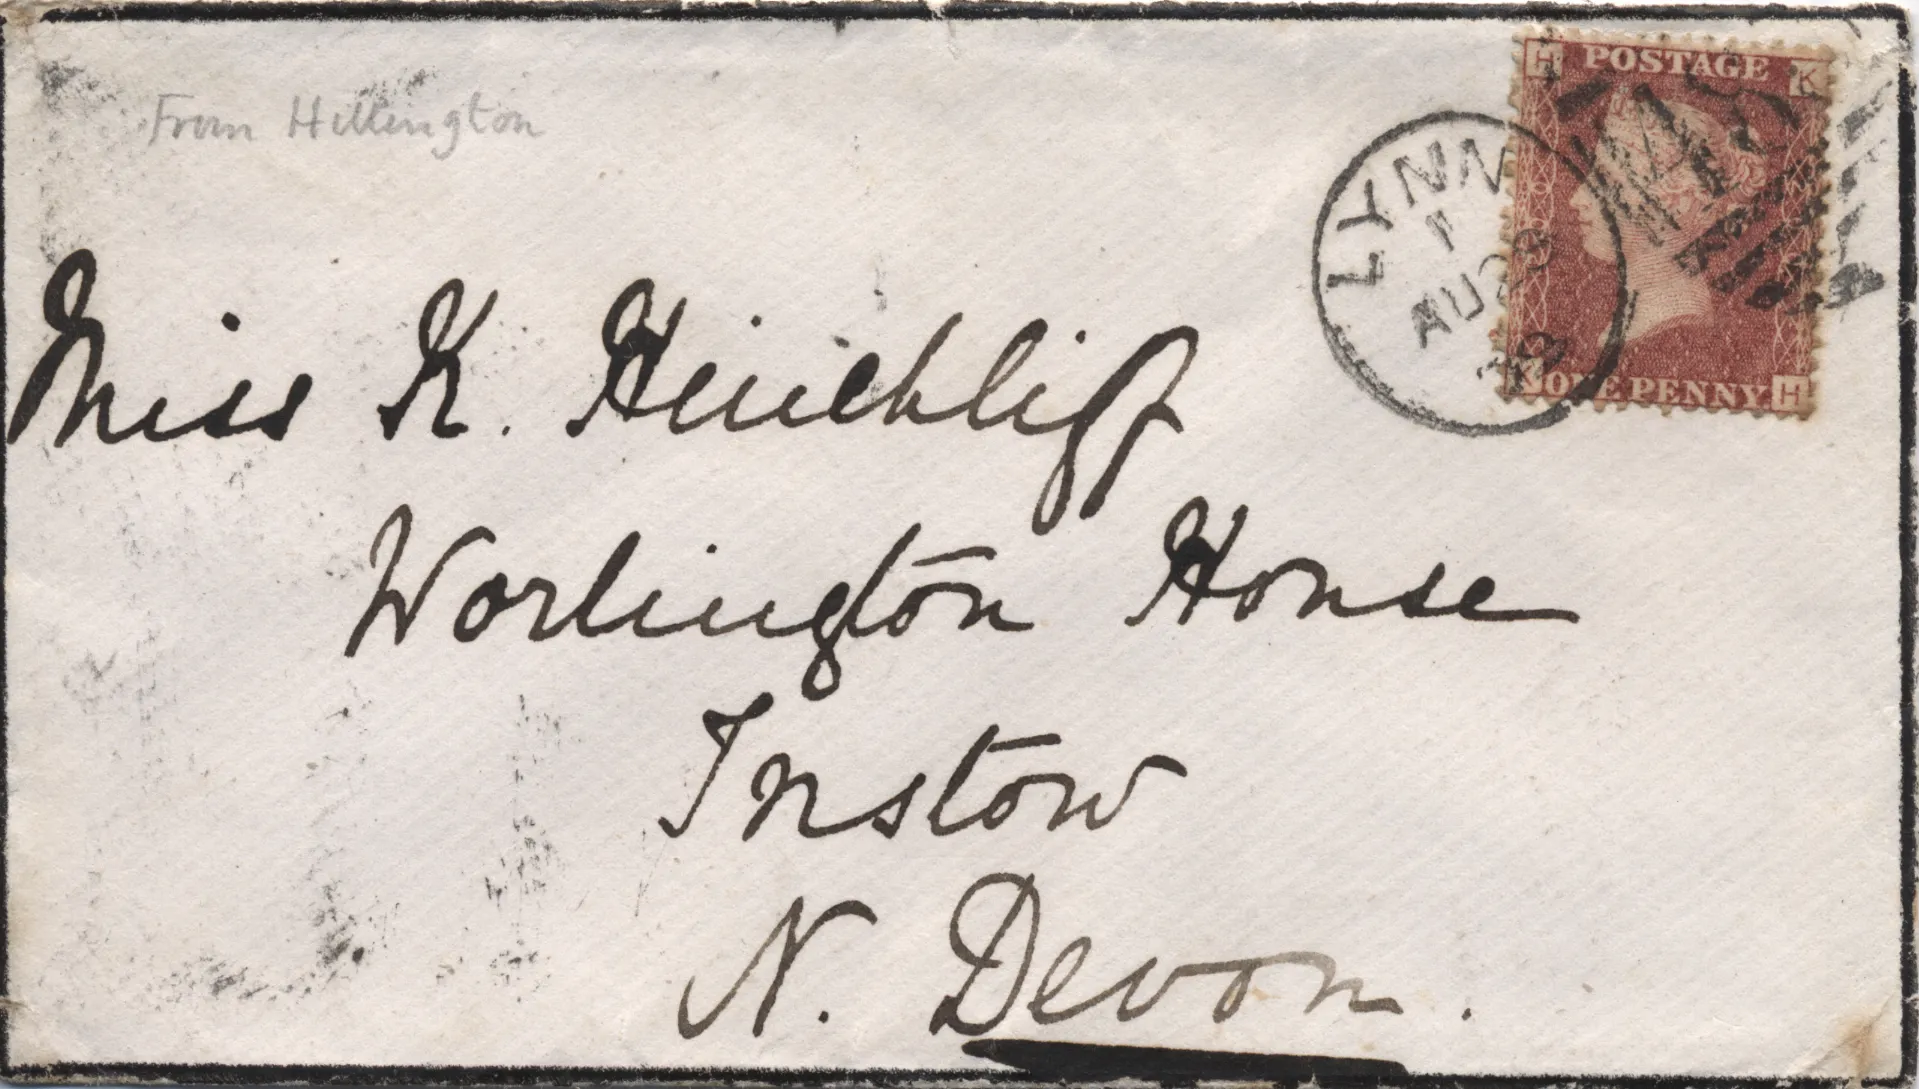 From Hillington
H POSTAGE K
LYNN
1
AU 28
Miss K. Hinchliff
K ONE PENNY H
Worlington House
Instow
N. Devon.